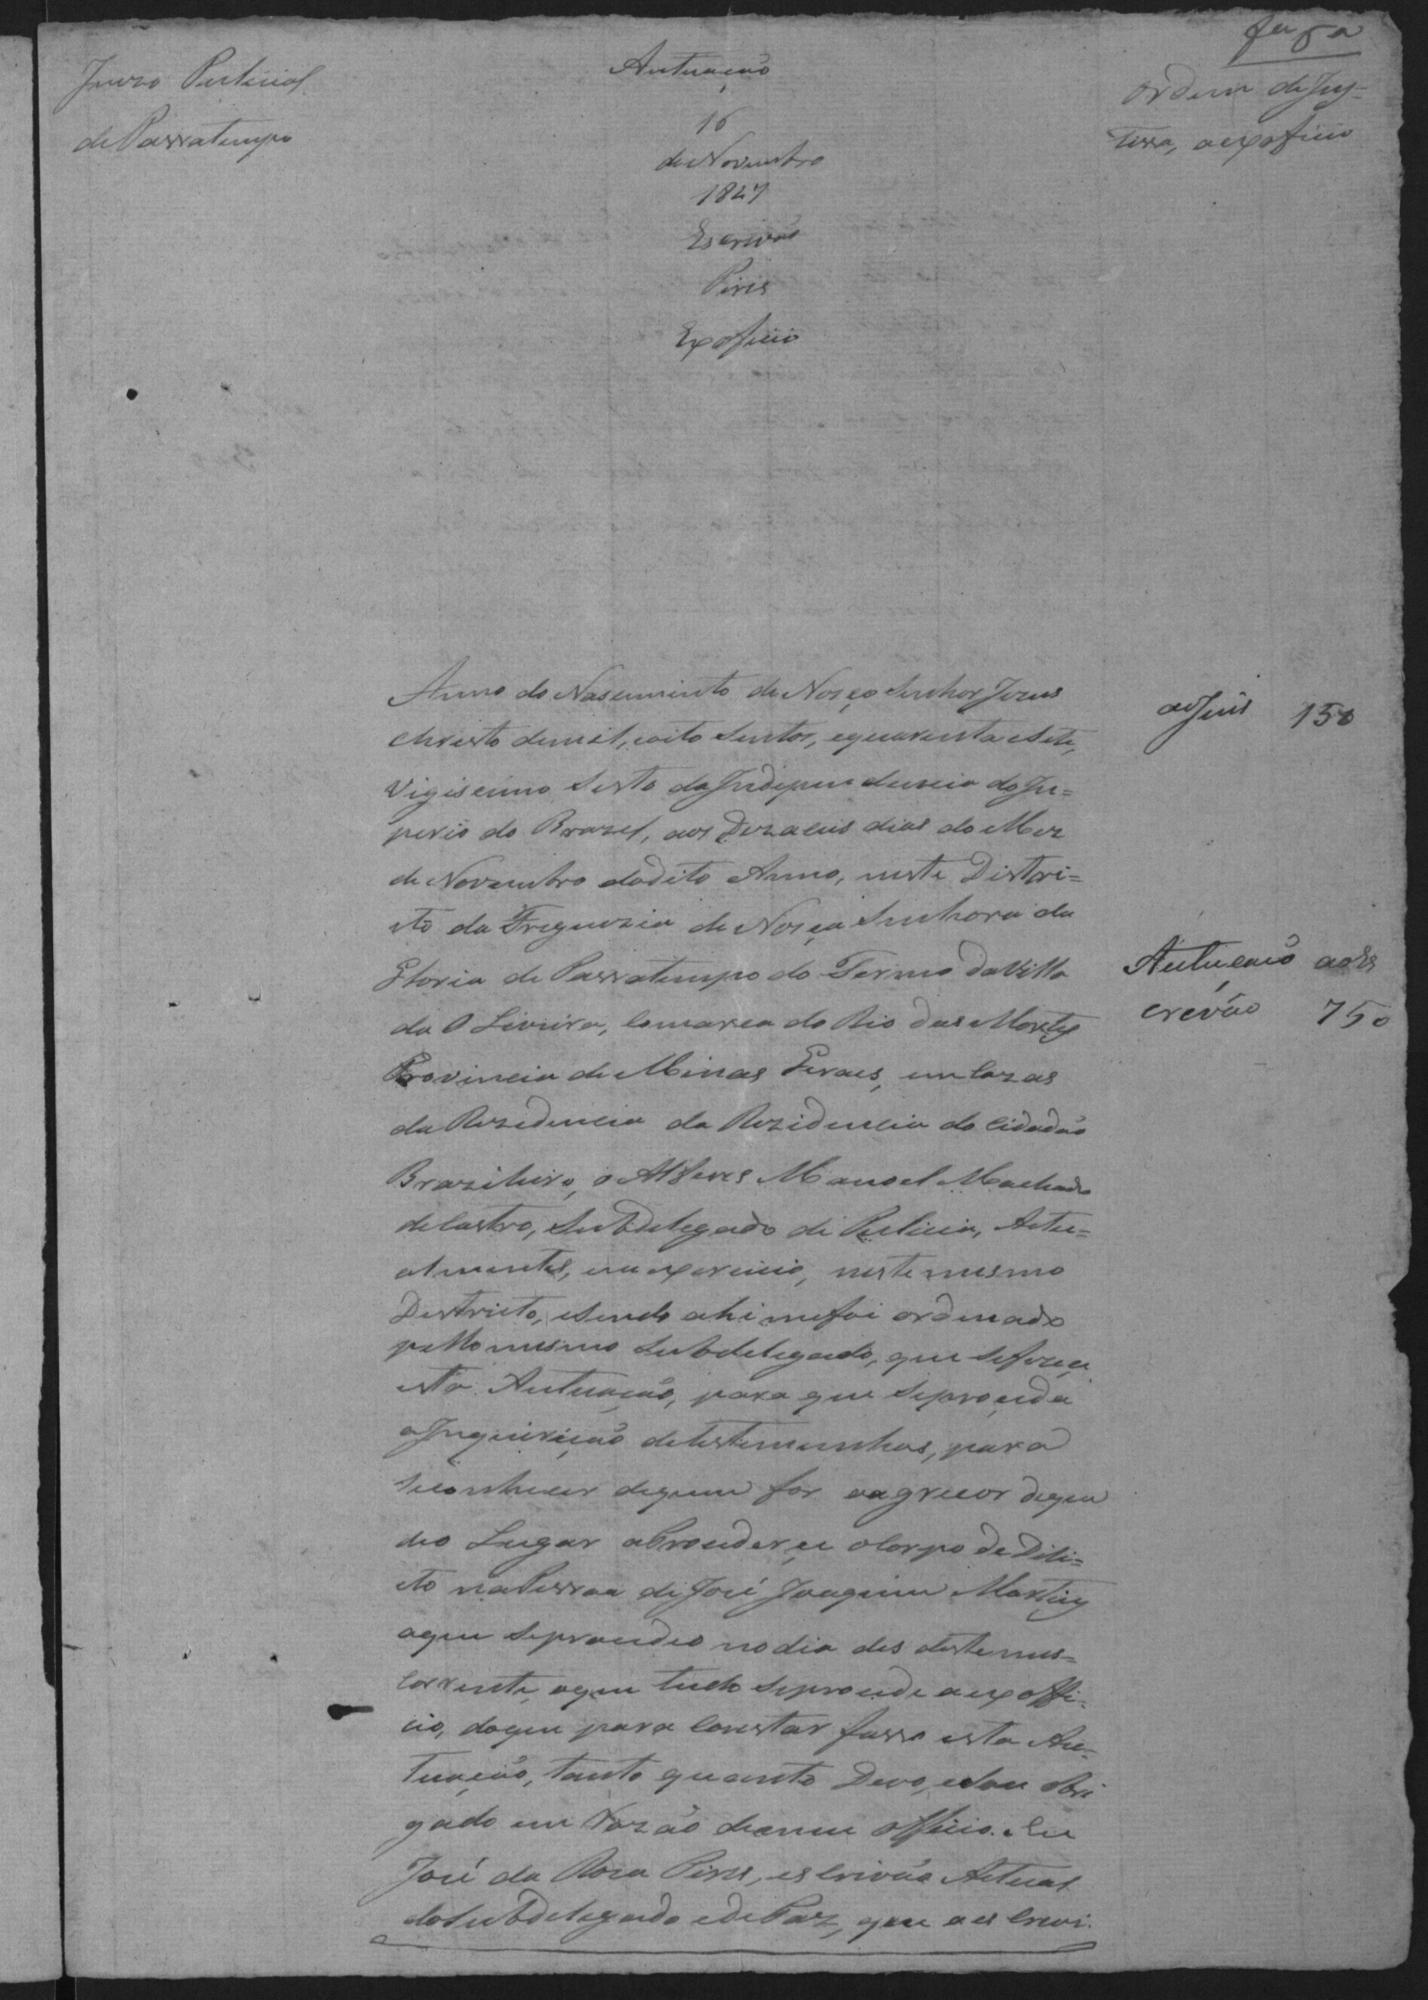 Juizo Pulicial
de Passatempo
Autuação
16
de Novembro
1847
Escrivão
Pires
Ex officio
Ordem de Jus=
tissa, aexoficio
Anno do Nascimento de Noiço Senhor Jezus
Christo demil, oito sentos, equarenta esete,
Vigiseimo Sesto da Independencia do Im=
perio do Brazil, aos Dezaceis dias do Mez
de Novembro dodito Anno, neste Distri=
cto da Freguezia de Noiça Senhora da
Gloria de Passatempo do Termo da Villa
da O Liveira, Comarca do Rio das Mortes
Provincia de Minas Geraes, em Cazas
da Rezidencia da Rezidencia do Cidadão
Brazileiro, o Alferes Manoel Machado
de Castro, Subdelegado de Pulicia, Actu=
almente, em exercicio, neste mesmo
Destricto, esendo ahi mefoi ordenado
pello mesmo Subdelegado, que sefizeçe
esta Autuação, para que seproçeda
a Inquirição detestemunhas, para
seconhecer dequem for oagreçor deque
deo Lugar aProcederçe o Corpo de Deli=
cto na Pessoa de José Joaquim Martins
aque seprocedeo nodia des deste mes=
Corrente, aque tudo seprocede aexoffi=
cio, doque para Constar fasso esta Au=
tuação, tanto quanto Devo, eSou obri
gado em Razão demeu officio. Eu
José da Roza Pires, esCrivão Actual
doSubdelegado edePaz, que aesCrevi.
aoJuis 150
Autuçaõ aoEs
crevão 750